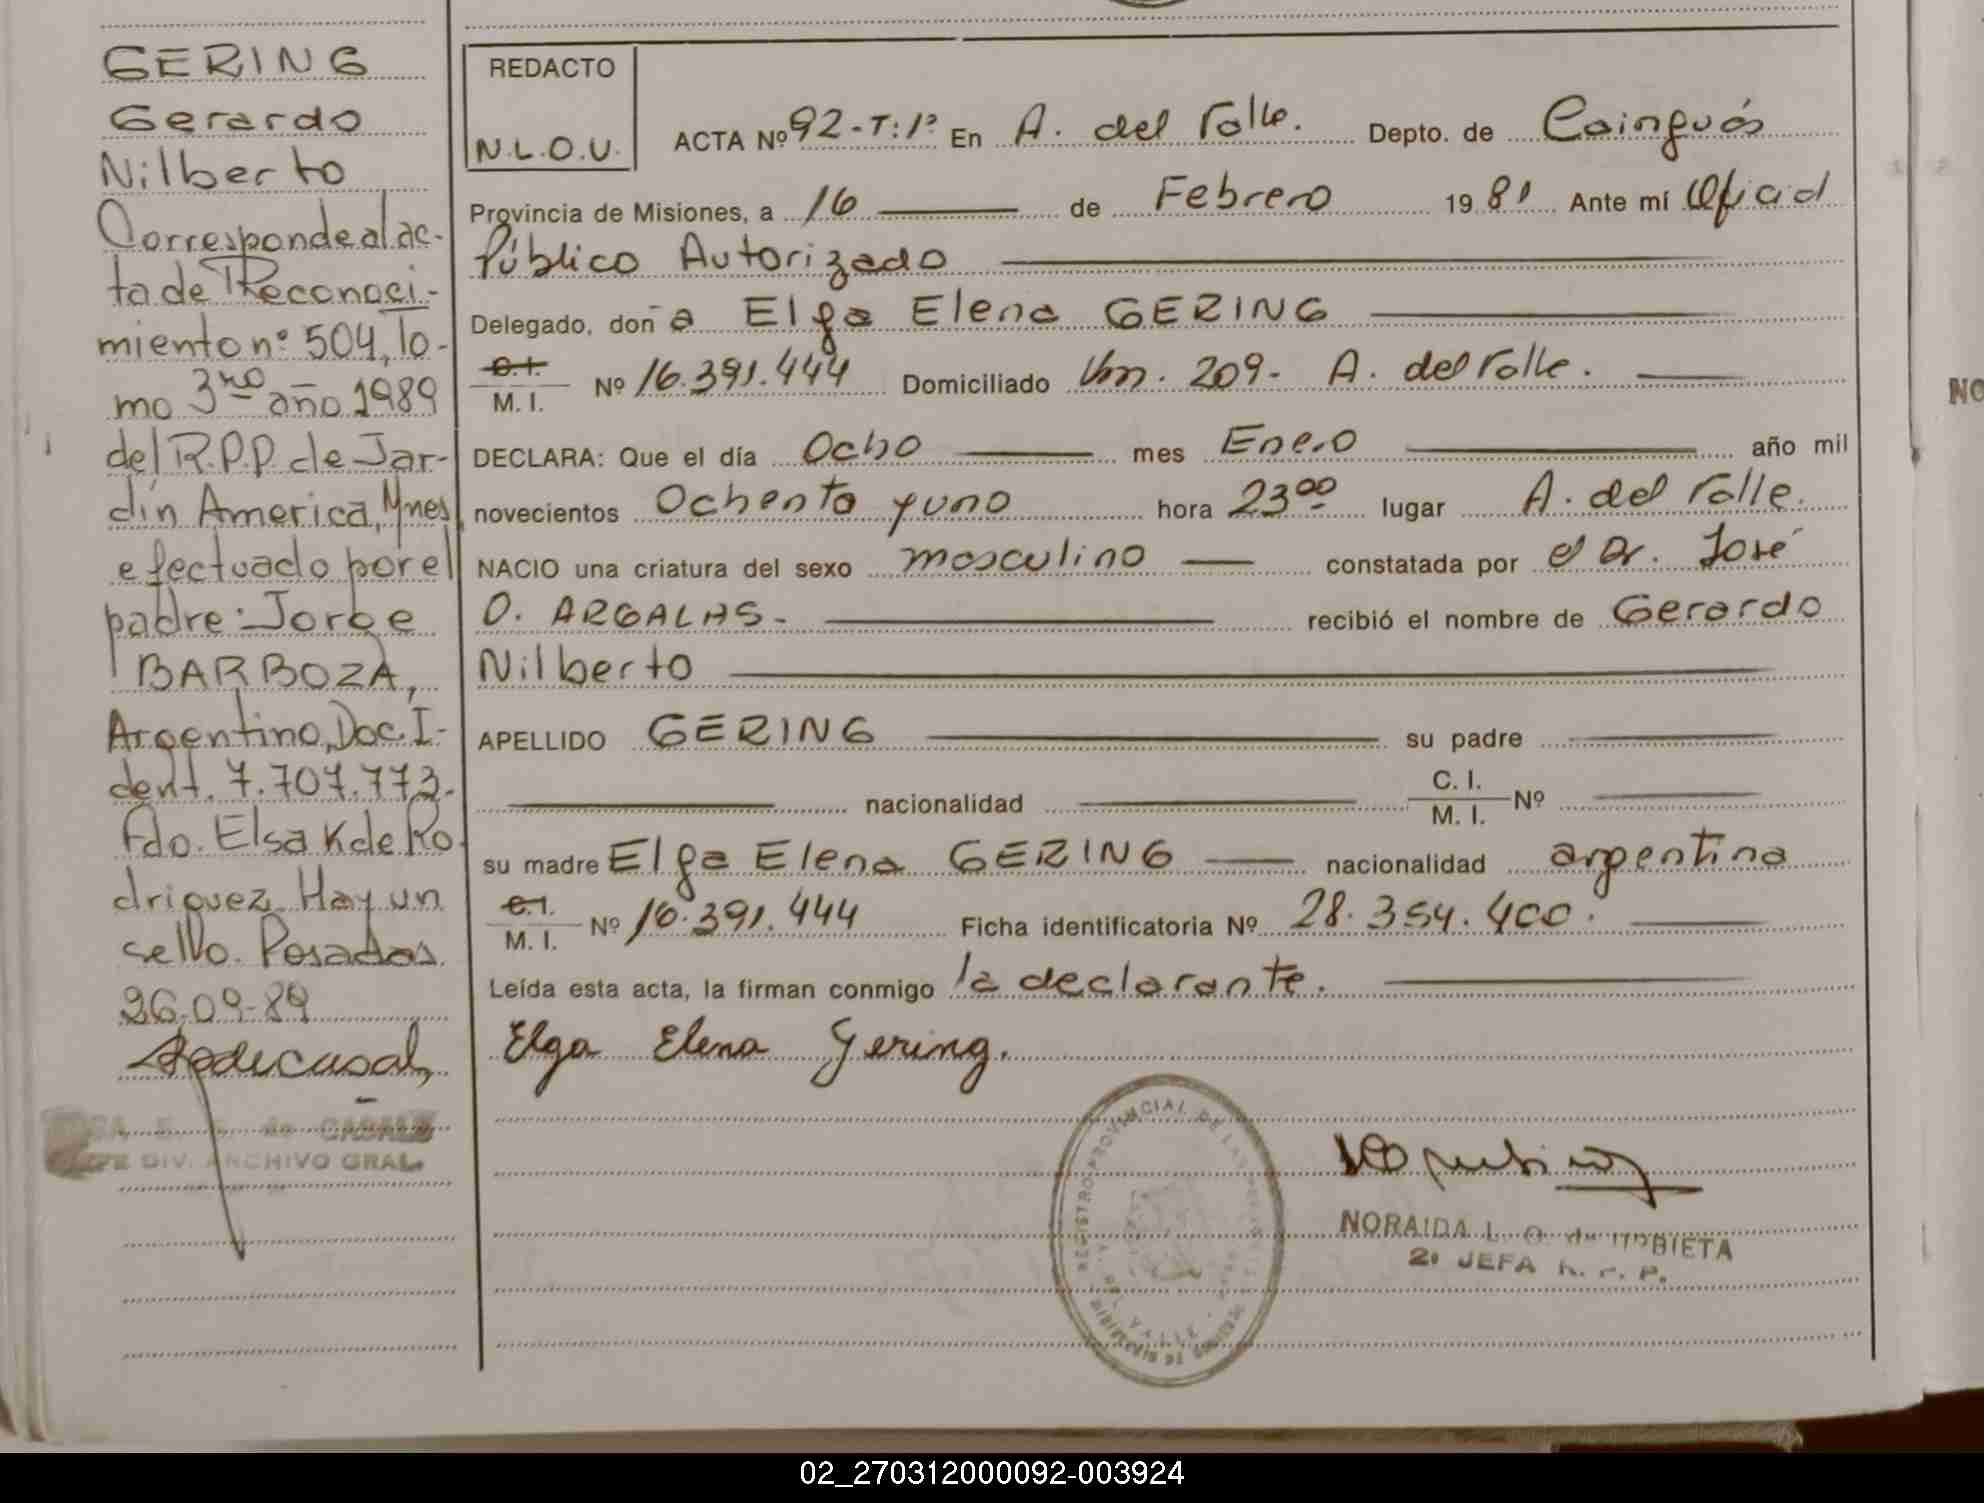 GERING
Gerardo
Nilberto
Corresponde al ac-
ta de Reconoci-
miento nº 504, to-
mo 3ro año 1989
del R.P.P. de Jar-
dín America, Mnes,
efectuado por el
padre: Jorge
BARBOZA,
Argentino, Doc. I-
dent. 7.707.773.
Fdo. Elsa K de Ro
driguez. Hay un
sello. Posadas
26-09-89
de CASALS
DIV. ARCHIVO GRAL.
REDACTO
N.L.O.U.
ACTA Nº 92-T:1º En A. del Valle. Depto. de Cainguás
Provincia de Misiones, a 16 de Febrero 1981 Ante mí Oficial
Público Autorizado
Delegado, don a Elga Elena GERING
C.I.
M. I. Nº 16.391.444 Domiciliado Km. 209- A. del Valle.
DECLARA: Que el día Ocho mes Enero año mil
novecientos Ochenta y uno hora 23⁰⁰ lugar A. del Valle.
NACIO una criatura del sexo masculino constatada por el Dr. José
O. ARGALAS- recibió el nombre de Gerardo
Nilberto
APELLIDO GERING su padre
nacionalidad C. I.
M. I. Nº
su madre Elga Elena GERING nacionalidad argentina
C.I.
M. I. Nº 16.391.444 Ficha identificatoria Nº 28.354.400.
Leída esta acta, la firman conmigo la declarante.
Elga Elena Gering.
REGISTRO PROVINCIAL DE LAS PERSONAS
DEL VALLE
NORAIDA L. O. de URBIETA
2º JEFA R. P. P.
NO
02_270312000092-003924